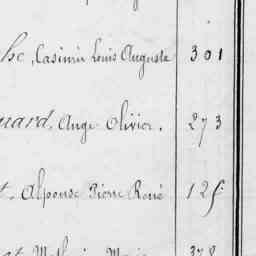 he, Casimir Louis Auguste 301
nard, Ange Olivier. 273
t, Alphonse Pierre René 125